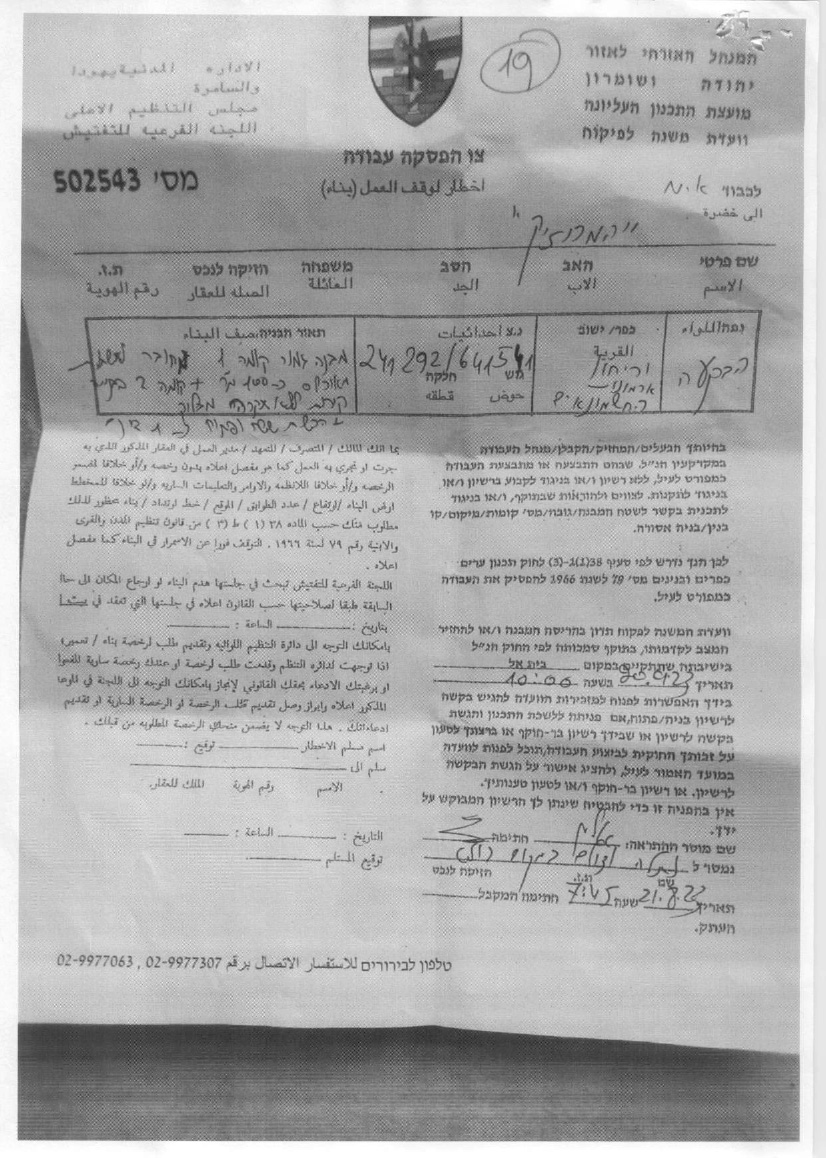 19
המנהל האזרחי לאזור
יהודה ושומרון
מועצת התכנון העליונה
וועדת משנה לפיקוח
الاداره المدنية يهودا
والسامرة
مجلس التنظيم الاعلى
اللجنه الفرعيه للتفتيش
צו הפסקה עבודה
اخطار لوقف العمل (بناء)
מסי 502543
לכבוד א.ש
الى حضرة
שם פרטי האב הסב משפחה הזיקה לנכס ת.ז.
الاسم الاب الجد العائلة الصله للعقار رقم الهوية
נפה اللواء
הבקעה
כפר/ ישוב
القرية
יריחו
ארמונות
החשמונאים
נ.צ احداثيات
241292/641541
גוש חלקה
حوض قطعه
תאור הבניה, صيف البناء
מבנה גמור קומה 1
בחיותך הבעלים/המחזיק/הקבלן/מנהל העבודה
במקרקעין הנ״ל, שבהם התבצעה או מתבצעת העבודה
כמפורט לעיל, ללא רשיון ו/או בניגוד לקבוע ברשיון ו/או
בניגוד לתקנות, לצווים ולהוראות שבתוקף, ו/או בניגוד
לתכנית בקשר לשטח המבנה/גובה/מס׳ קומות/מיקום/קו
בנין/בניה אסורה.
לכן הנך נדרש לפי סעיף 38(1)-(3) לחוק תכנון ערים
כפרים ובנינים מס׳ 79 לשנת 1966 להפסיק את העבודה
כמפורט לעיל.
וועדת המשנה לפקוח תדון בהריסת המבנה ו/או להחזיר
המצב לקדמותו, בתוקף סמכותה לפי החוק הנ״ל
בישיבתה שתתקיים במקום בית אל
תאריך בשעה 10:00
בידך האפשרות לפנות למזכירות הוועדה להגיש בקשה
לרשיון בניה/פתוח, אם פנית ללשכת התכנון והגשת
בקשה לרשיון או שבידך רשיון בר-תוקף או ברצונך לטעון
על זכותך החוקית לביצוע העבודה, תוכל לפנות לוועדה
במועד האמור לעיל, ולהציג אישור על הגשת הבקשה
לרשיון, או רשיון בר-תוקף ו/או לטעון טענותיך.
אין בהפניה זו כדי להבטיח שינתן לך הרשיון המבוקש על
ידך.
שם מוסר ההתראה: חתימה
נמסר ל
שם ת.ז. הזיקה לנכס
תאריך שעה 7:45 חתימה המקבל
העתק.
بما انك المالك / المتصرف / المتعهد / مدير العمل في العقار المذكور الذي به
جرت او تجري به العمل كما هو مفصل اعلاه بدون رخصه و/أو خلافا لمفسر
الرخصه و/أو خلافا للانظمه والاوامر والتعليمات الساريه و/او خلافا للمخطط
ارض البناء / ارتفاع / عدد الطوابق / الموقع / خط ارتداد / بناء محظور لذلك
مطلوب منك حسب الماده ٣٨ (١) ط (٣) من قانون تنظيم المدن والقرى
والابنية رقم ٧٩ لسنة ١٩٦٦ . التوقف فورا عن الاستمرار في البناء كما مفصل
اعلاه .
اللجنة الفرعية للتفتيش تبحث في جلستها هدم البناء او ارجاع المكان الى حالته
السابقة طبقا لصلاحيتها حسب القانون اعلاه في جلستها التي تعقد في
بتاريخ : الساعة :
بامكانك التوجه الى دائرة التنظيم اللوائيه وتقديم طلب لرخصة بناء / تعمير،
اذا توجهت لدائره التنظم وقدمت طلب لرخصة او عندك رخصة سارية المفعول
او برغبتك الادعاء بحقك القانوني لإنجاز بامكانك التوجه الى اللجنة في
المذكور اعلاه وابراز وصل تقديم طلب الرخصة او الرخصة السارية او تقديم
ادعاءاتك . هذا التوجه لا يضمن منحك الرخصة المطلوبه من قبلك .
اسم مسلم الاخطار توقيع :
سلم الى
الاسم رقم الهوية المالك للعقار
التاريخ : الساعة :
توقيع المستلم
טלפון לבירורים للاستفسار الاتصال برقم 02-9977307 , 02-9977063